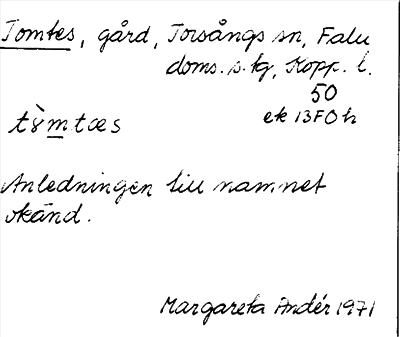 Tomtes, gård, Torsångs sn, Falu
doms. s. tg, Kopp. l.
50
ek 13F0h
tòmtæs
Anledningen till namnet
okänd.
Margareta Andér 1971